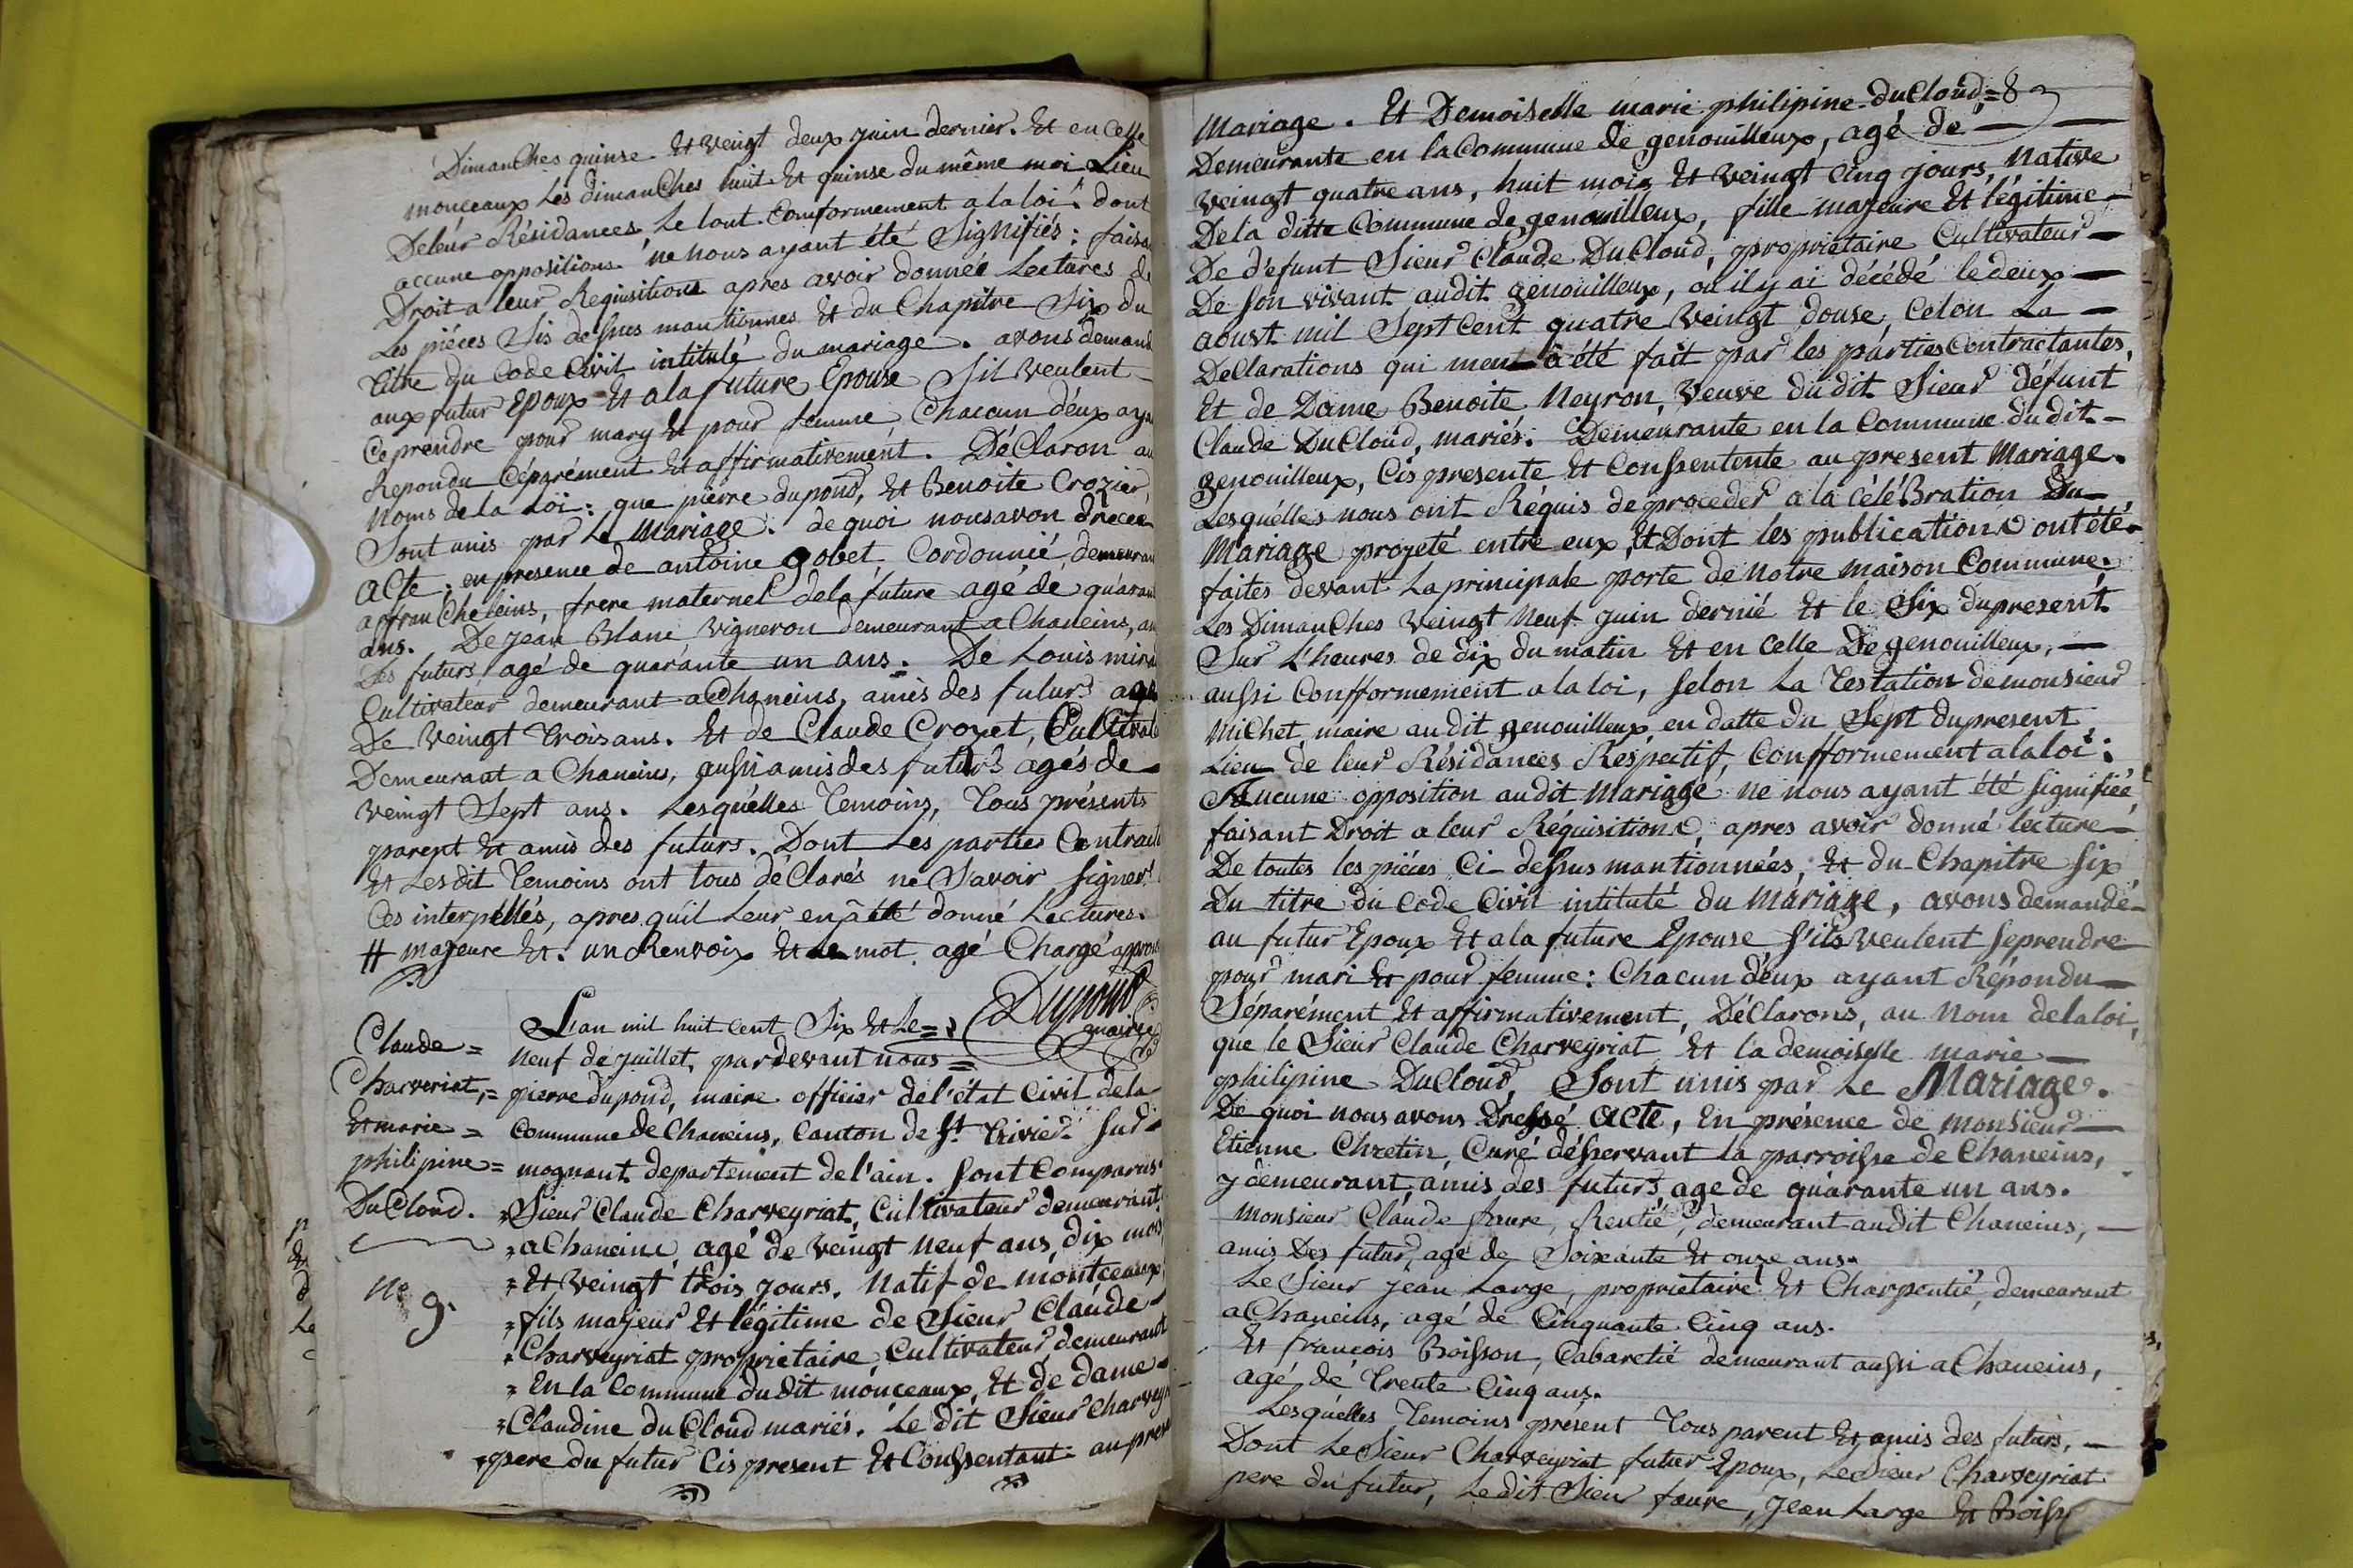 Dimanches quinse Et veingt deux juin dernier. Et en Celle
monceaux Les dimanches huit Et quinse du même moi Lieu
De leur Résidances Le tout Comformement a la loi. dont
accune oppositions ne nous ayant été Signifiés; faisa
Droit a leur Requisitions apres avoir donnée Lectures de
Les piéces Sis dessus mantionnes Et du Chapitre Six du
titre du Code Civil intitulé du mariage. avons demand
aux futur Epoux Et a la future Epouse Sil veulent
Ce prendre pour mary Et pour femme Chaccun d'eux aya
Repondu Céparément Et affirmativement. Déclaron au
Noms de la Loi: que pierre dupond, Et Benoite Crozier
Sont unis par Le Mariage. de quoi nous avon drecee
Acte; en presence de antoine gobet, Cordonnié, demeuran
affran Cheleins, frere maternel de la future agé de quaran
ans. De jean Blanc vigneron demeurant a Chaneins, an
Les futurs agé de quarante un ans. De Louis mira
Cultivateur demeurant a Chaneins, amis des futurs agé
De veingt trois ans. Et de Claude Croyet, Cultivat
Demeurant a Chaneins, aussi amis des futurs agés de
veingt Sept ans. Lesquélles Temoins, Tous présents
parent Et amis des futurs. Dont Les parties Contract
Et Les dit Temoins ont tous déclarés ne Savoir Signer
Ces interpéllés, apres qu'il Leur en à été donné Lectures.
# majeure Et. un Renvoix Et le mot agé Chargé approu
Dupond
maire
L'an mil huit cent Six Et Le =
neuf de juillet, pardevant nous =
Claude =
Charveriat, = pierre dupond, maire officier de l'état Civil de la
Et marie = Commune de Chaneins, Canton de St. Trivier Sud
philipine = mognant departement de l'ain. Sont Comparus
Du Cloud. = Sieur Claude Charveyriat, Cultivateur demeurant
= a Chaneins, agé de veingt neuf ans, dix mois
No 9. = Et veingt trois jours. Natif de montceaux
= fils majeur Et légitime de Sieur Claude
= Charveyriat propriétaire, Cultivateur demeurant
= En la Commune du dit monceaux, Et de dame
= Claudine du Cloud mariés. Le dit Sieur Charvey
= pere du futur Cis present Et Conssentant au pres
Mariage. Et Demoiselle marie philipine Du Cloud, = 8
Demeurante en la Commune de genouilleux, agé de
veingt quatre ans, huit mois Et veingt Cinq jours, Native
De la ditte Commune de genouilleux, fille majeure Et légitime
De défunt Sieur Claude Du Cloud, propriétaire Cultivateur
De Son vivant audit genouilleux, où il y ai décédé le deux
aoust mil Sept Cent quatre veingt douse, Celon La
Declarations qui ment à été fait par les parties Contractantes,
Et de Dame Benoite Neyron, veuve du dit Sieur défunt
Claude Du Cloud, mariés. Demeurante en la Commune du dit
genouilleux, Cis presente Et Conssentente au present Mariage.
Lesquélles nous ont Réquis de proceder a la Céébration Du
Mariage projeté entre eux, Et Dont les publications ont été
faites devant La principale porte de Notre maison Commune.
Les Dimanches veingt Neuf juin dernié Et le Six du present
Sur L'heures de dix du matin Et en Celle De genouilleux,
aussi Confformement a la loi, selon La Testation de monsieur
Michet maire audit genouilleux en datte du Sept du present
Lieu de leur Résidances Réspectif, Confformement a la loi:
Aucune opposition audit Mariage ne nous ayant été signifiée
faisant Droit a leur Réquisitions, apres avoir donné lecture
De toutes les piéces Ci-dessus mantionnées, Et du Chapitre six
Du titre du Code Civil intitulé du Mariage, avons demandé
au futur Epoux Et a la future Epouse s'ils veulent se prendre
pour mari Et pour femme: Chacun d'eux ayant Répondu
Séparément Et affirmativement, Déclarons, au Nom de la loi,
que le Sieur Claude Charveyriat Et la demoiselle marie
philipine Du Cloud, Sont unis par Le Mariage.
De quoi nous avons Dressé Acte, En présence de Monsieur
Etienne Chretin, Curé déservant la parroisse de Chaneins,
y demeurant, amis des futurs, age de quarante un ans.
Monsieur Claude faure, Rentié, demeurant audit Chaneins,
amis Des futur, agé de Soixante Et onze ans.
Le Sieur jean Large, propriétaire Et Charpentié, demeurant
a Chaneins, agé de Cinquante Cinq ans.
Et francois Boisson, Cabaretié demeurant aussi a Chaneins,
agé de Trente Cinq ans.
Lesquélles Temoins présent Tous parent Et amis des futurs,
Dont Le Sieur Charveyriat futur Epoux, Le Sieur Charveyriat
pere du futur, Le dit Sieur faure, jean Large Et Boiss